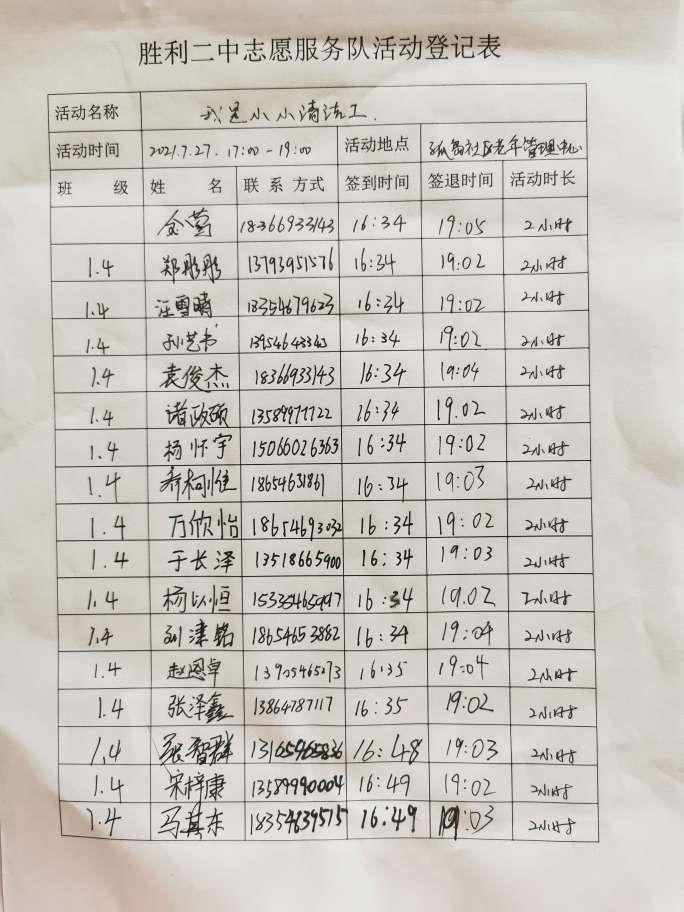 胜利二中志愿服务队活动登记表
活动名称 我是小小清洁工.
活动时间 2021.7.27. 17:00-19:00 活动地点 孤岛社区老年管理中心
班 级 姓 名 联系方式 签到时间 签退时间 活动时长
18366933143 16:34 19:05 2小时
1.4 郑彤彤 13793951576 16:34 19:02 2小时
1.4 汪雪晴 13354679623 16:34 19:02 2小时
1.4 孙艺书 13954643343 16:34 19:02 2小时
1.4 袁俊杰 18366933143 16:34 19:04 2小时
1.4 诸政硕 13589977722 16:34 19.02 2小时
1.4 杨怀宇 15066026363 16:34 19:02 2小时
1.4 乔柯惟 18654631861 16:34 19:03 2小时
1.4 万欣怡 18654693032 16:34 19:02 2小时
1.4 于长泽 13518665900 16:34 19:03 2小时
1.4 杨以恒 16:34 19.02 2小时
1.4 刘津铭 18654653882 16:34 19:04 2小时
1.4 赵恩卓 16:35 19:04 2小时
1.4 张泽鑫 13864787117 16:35 19:02 2小时
1.4 张智群 16:48 19:03 2小时
1.4 宋梓康 13589990004 16:49 19:02 2小时
1.4 马其东 18354639515 16:49 19:03 2小时